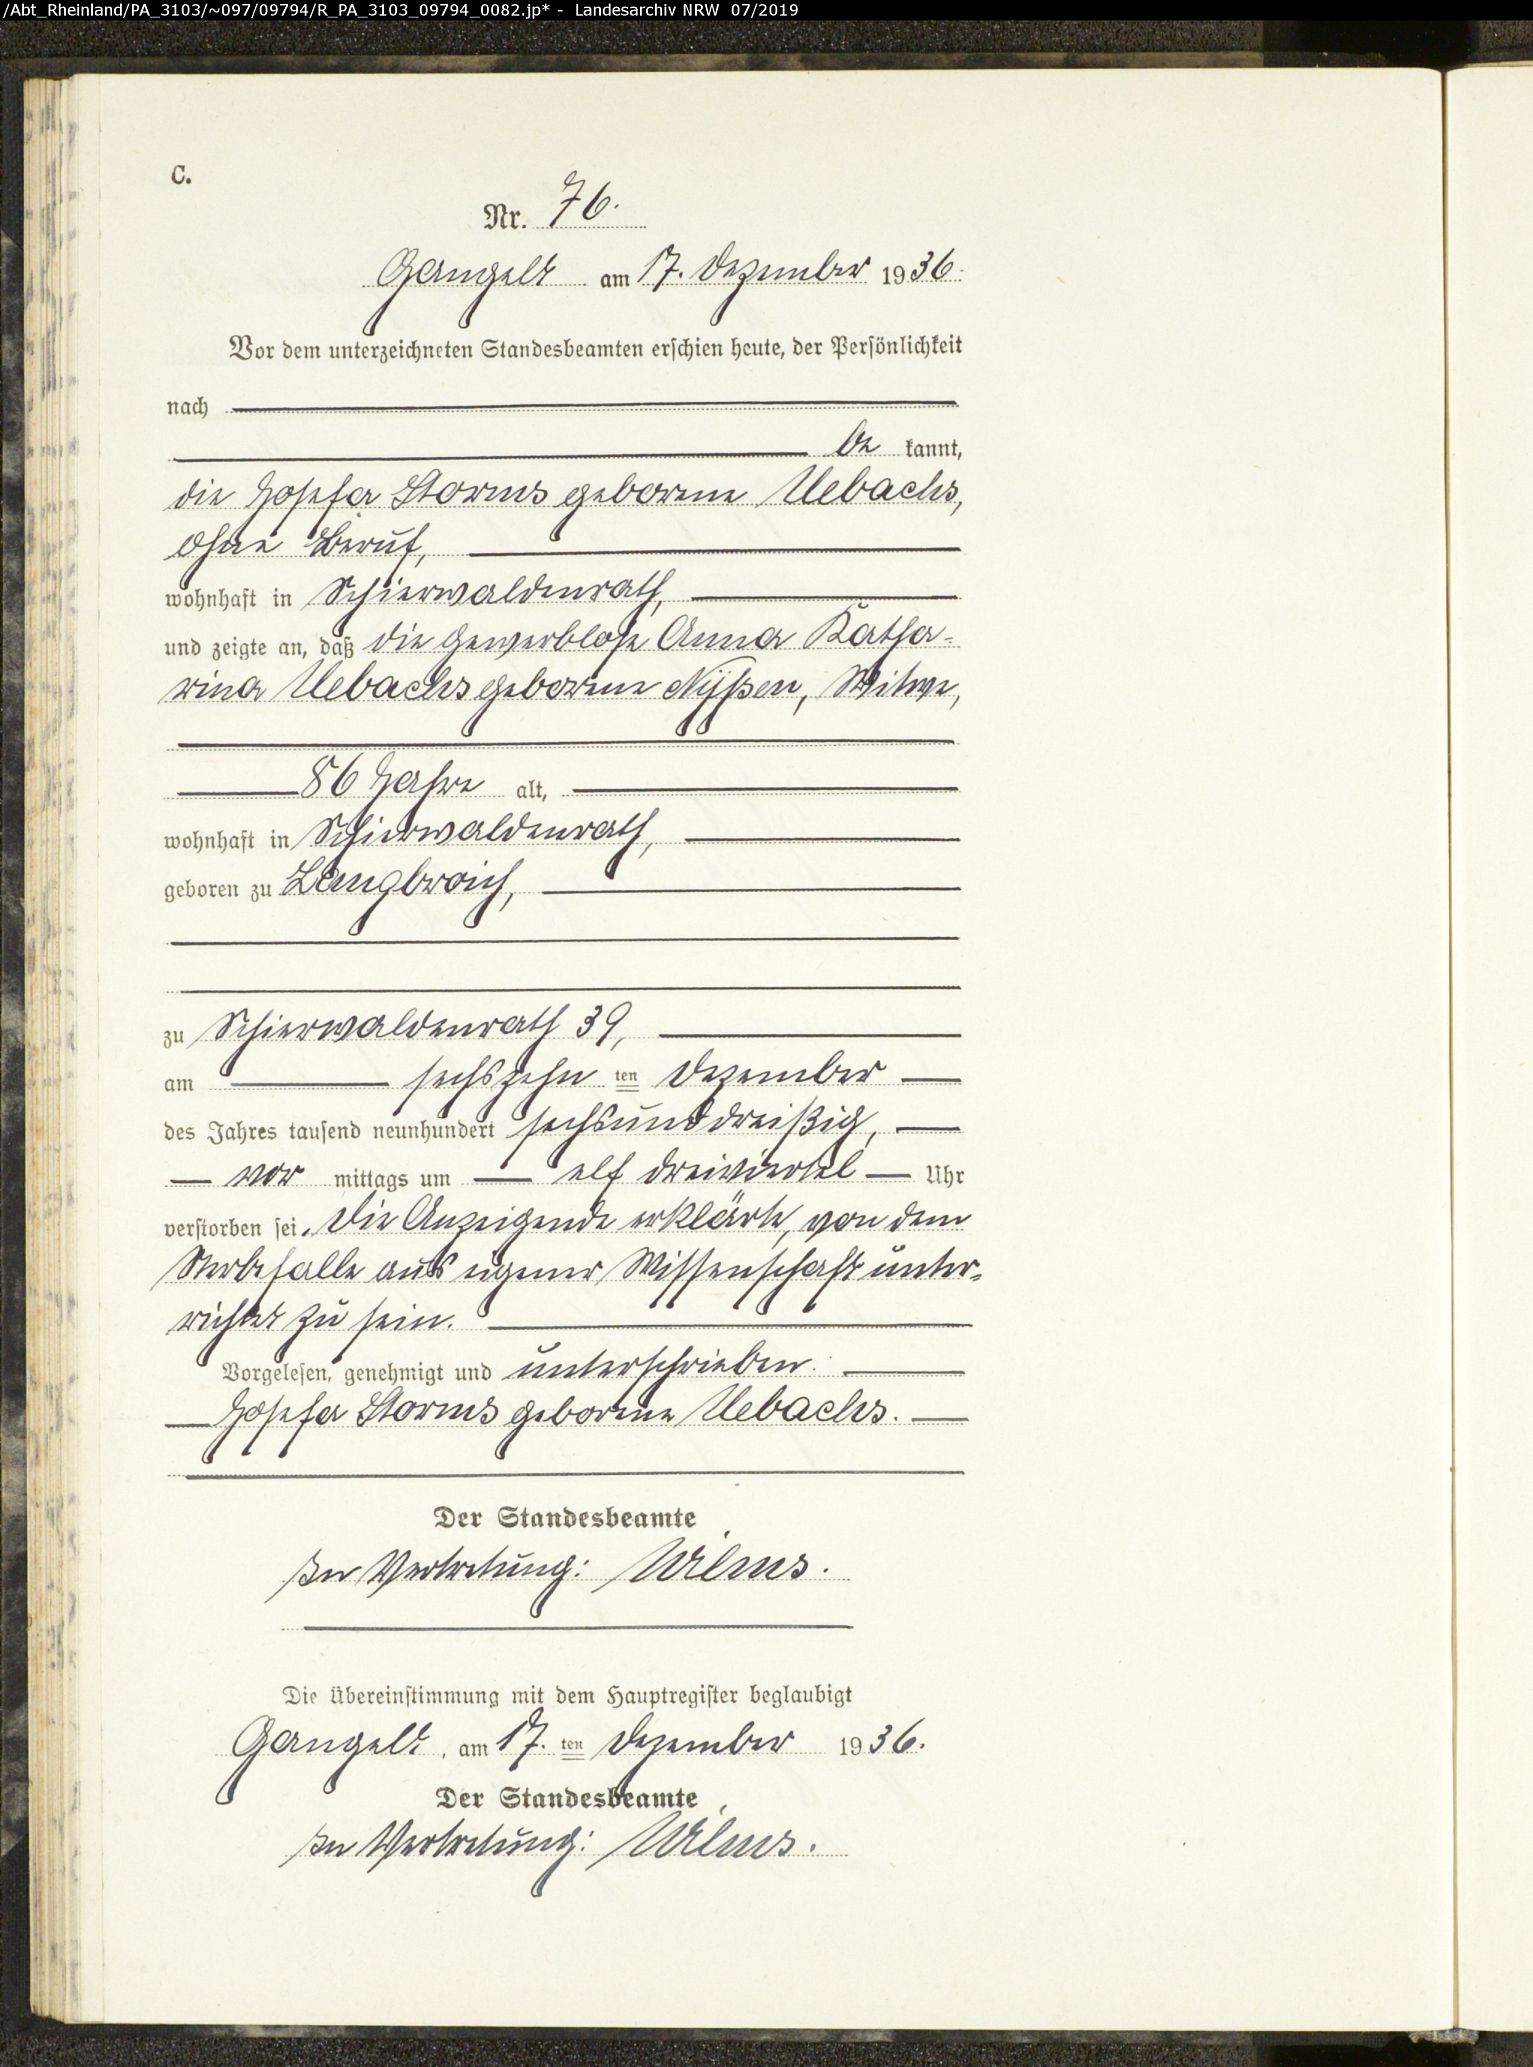 /Abt_Rheinland/PA_3103/~097/09794/R_PA_3103_09794_0082.jp* - Landesarchiv NRW 07/2019
C.
Nr. 76.
Gangelt am 17. Dezember 1936.
Vor dem unterzeichneten Standesbeamten erschien heute, der Persönlichkeit
nach
be kannt,
die Josefa Storms geborene Uebachs,
ohne Beruf,
wohnhaft in Schierwaldenrath,
und zeigte an, daß die gewerblose Anna Katha-
rina Uebachs geborene Nyßen, Witwe,
86 Jahre alt,
wohnhaft in Schierwaldenrath,
geboren zu Langbroich,
zu Schierwaldenrath 39,
am sechszehn ten Dezember
des Jahres tausend neunhundert sechsunddreißig,
vor mittags um elf dreiviertel Uhr
verstorben sei. Die Anzeigende erklärte, von dem
Sterbefalle aus eigener Wissenschaft unter-
richtet zu sein.
Vorgelesen, genehmigt und unterschrieben.
Josefa Storms geborene Uebachs.
Der Standesbeamte
In Vertretung: Wilms.
Die Übereinstimmung mit dem Hauptregister beglaubigt
Gangelt, am 17. ten Dezember 1936.
Der Standesbeamte
In Vertretung: Wilms.